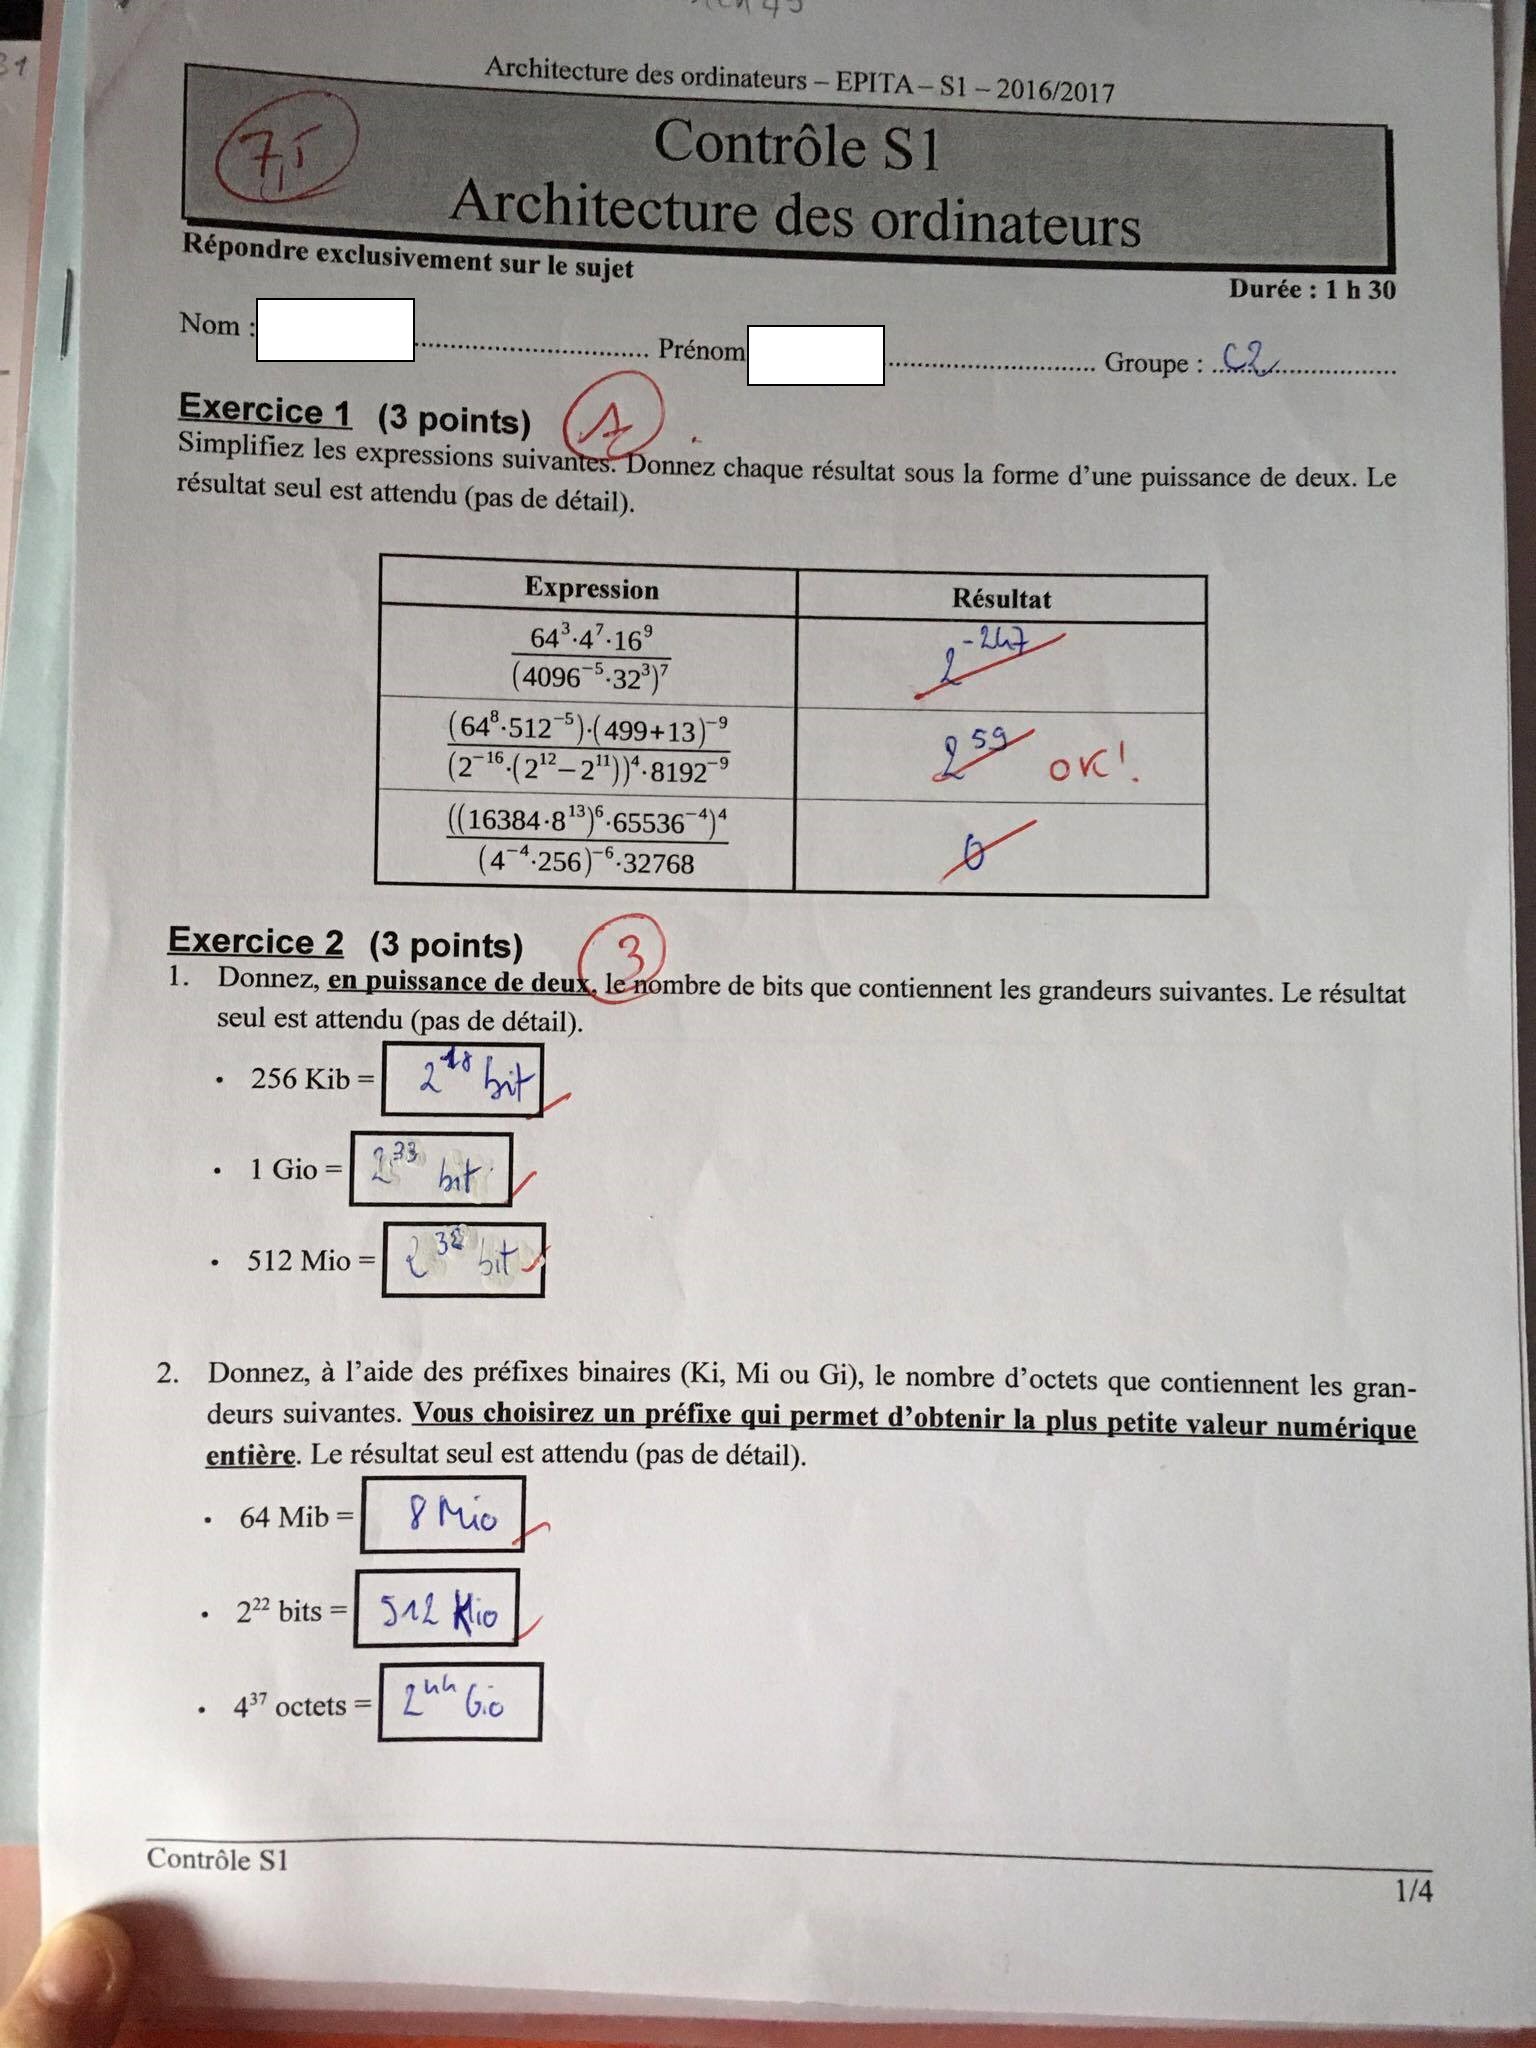 Architecture des ordinateurs – EPITA – S1 – 2016/2017
7,5
Contrôle S1
Architecture des ordinateurs
Répondre exclusivement sur le sujet
Durée : 1 h 30
Nom : Prénom Groupe : C2
Exercice 1 (3 points)
Simplifiez les expressions suivantes. Donnez chaque résultat sous la forme d’une puissance de deux. Le
résultat seul est attendu (pas de détail).
Expression Résultat
64³·4⁷·16⁹ / (4096⁻⁵·32³)⁷ 2⁻²⁴⁷
(64⁸·512⁻⁵)·(499+13)⁻⁹ / (2⁻¹⁶·(2¹²–2¹¹))⁴·8192⁻⁹ 2⁵⁹ OK!
((16384·8¹³)⁶·65536⁻⁴)⁴ / (4⁻⁴·256)⁻⁶·32768 0
Exercice 2 (3 points) 3
1. Donnez, en puissance de deux, le nombre de bits que contiennent les grandeurs suivantes. Le résultat
seul est attendu (pas de détail).
• 256 Kib = 2¹⁸ bit
• 1 Gio = 2³³ bit
• 512 Mio = 2³² bit
2. Donnez, à l’aide des préfixes binaires (Ki, Mi ou Gi), le nombre d’octets que contiennent les gran-
deurs suivantes. Vous choisirez un préfixe qui permet d’obtenir la plus petite valeur numérique
entière. Le résultat seul est attendu (pas de détail).
• 64 Mib = 8 Mio
• 2²² bits = 512 Kio
• 4³⁷ octets = 2⁴⁴ Gio
Contrôle S1
1/4